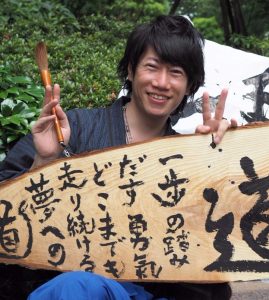 道
一歩の踏み
だす勇氣
どこまでも
走り続ける
夢への
道